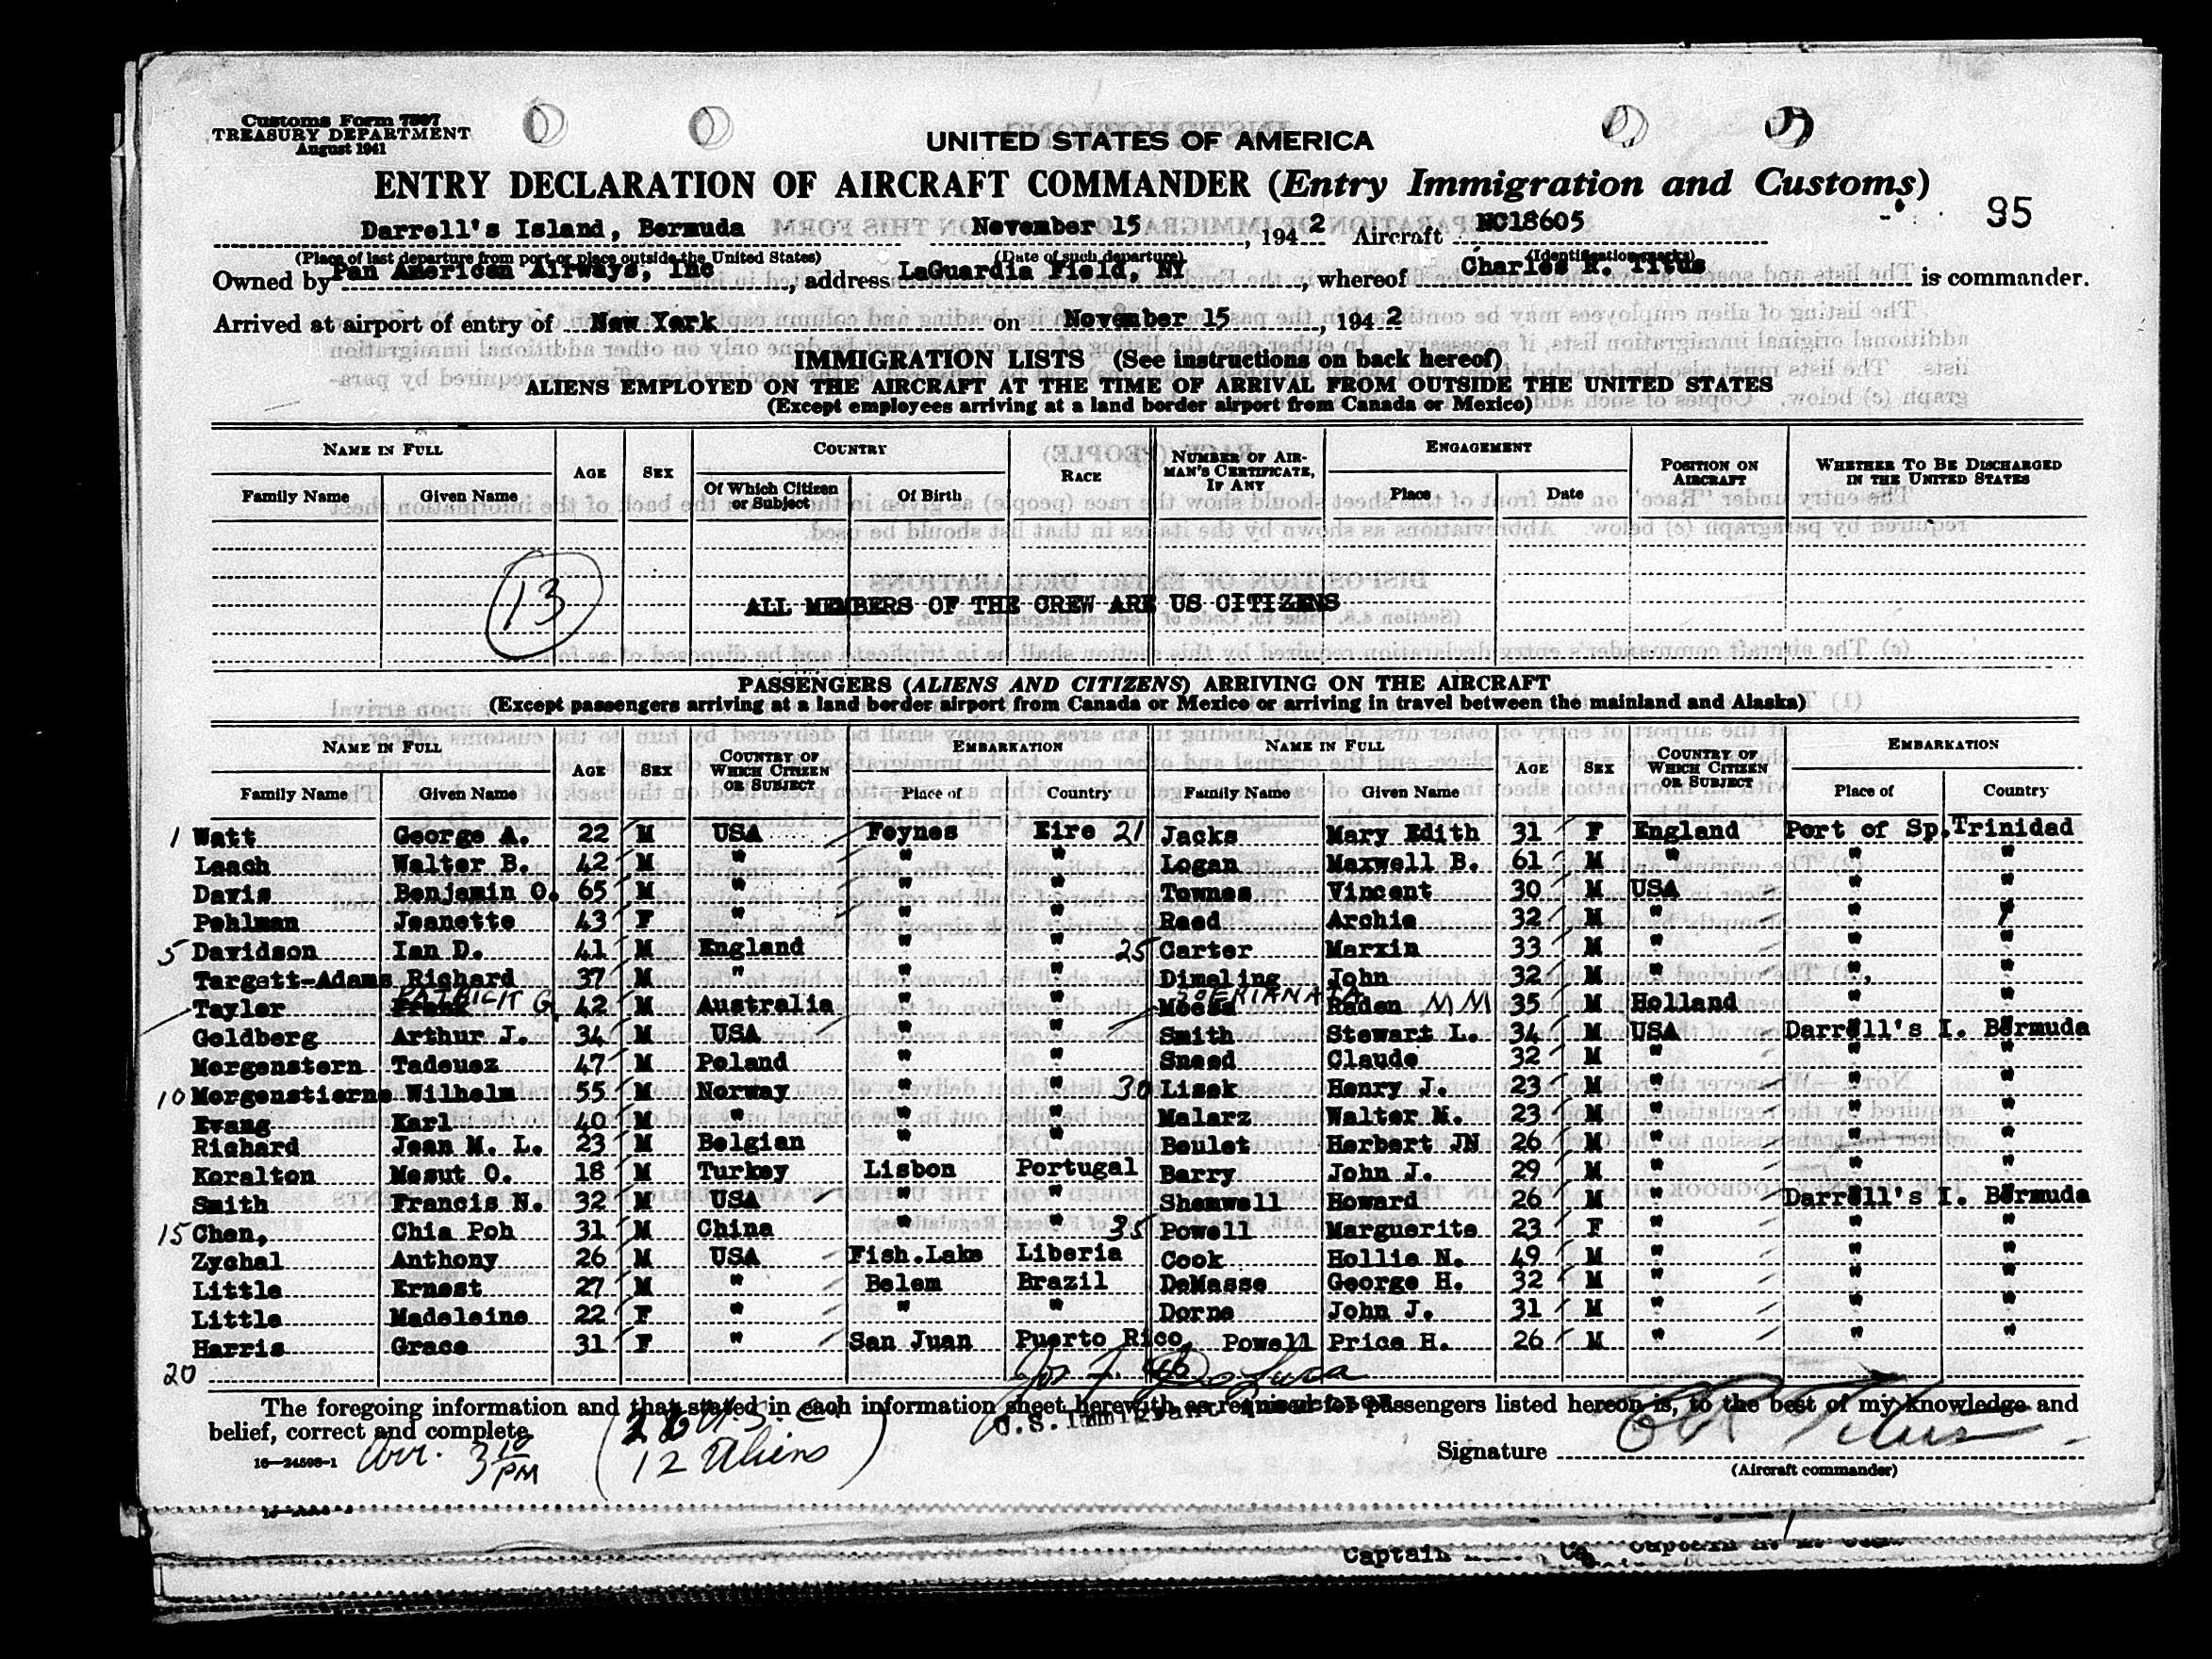 Customs Form 7507
TREASURY DEPARTMENT
August 1941
UNITED STATES OF AMERICA
ENTRY DECLARATION OF AIRCRAFT COMMANDER (Entry Immigration and Customs)
95
Darrell's Island, Bermuda November 15, 1942 Aircraft NC18605
(Place of last departure from port or place outside the United States) (Date of such departure) (Identification marks)
Owned by Pan American Airways, Inc, address LaGuardia Field, NY, whereof Charles R. Titus is commander.
Arrived at airport of entry of New York on November 15, 1942
IMMIGRATION LISTS (See instructions on back hereof)
ALIENS EMPLOYED ON THE AIRCRAFT AT THE TIME OF ARRIVAL FROM OUTSIDE THE UNITED STATES
(Except employees arriving at a land border airport from Canada or Mexico)
NAME IN FULL AGE SEX COUNTRY RACE NUMBER OF AIRMAN'S CERTIFICATE, IF ANY ENGAGEMENT POSITION ON AIRCRAFT WHETHER TO BE DISCHARGED IN THE UNITED STATES
Family Name Given Name Of Which Citizen or Subject Of Birth Place Date
13
ALL MEMBERS OF THE CREW ARE US CITIZENS
PASSENGERS (ALIENS AND CITIZENS) ARRIVING ON THE AIRCRAFT
(Except passengers arriving at a land border airport from Canada or Mexico or arriving in travel between the mainland and Alaska)
NAME IN FULL AGE SEX COUNTRY OF WHICH CITIZEN OR SUBJECT EMBARKATION NAME IN FULL AGE SEX COUNTRY OF WHICH CITIZEN OR SUBJECT EMBARKATION
Family Name Given Name Place of Country Family Name Given Name Place of Country
1 Watt George A. 22 M USA Foynes Eire 21 Jacks Mary Edith 31 F England Port of Sp. Trinidad
Leach Walter B. 42 M " " " Logan Maxwell B. 61 M " " "
Davis Benjamin O. 65 M " " " Townes Vincent 30 M USA " "
Pehlman Jeanette 43 F " " " Reed Archie 32 M " " "
5 Davidson Ian D. 41 M England " " 25 Carter Marxin 33 M " " "
Targett-Adams Richard 37 M " " " Dimeling John 32 M " " "
Tayler Frank PATRICK G. 42 M Australia " " Moesa SOERIANATA Raden MM 35 M Holland " "
Goldberg Arthur J. 34 M USA " " Smith Stewart L. 34 M USA Darrell's I. Bermuda
Morgenstern Tadeusz 47 M Poland " " Sneed Claude 32 M " " "
10 Morgenstierne Wilhelm 55 M Norway " " 30 Lisek Henry J. 23 M " " "
Evang Karl 40 M " " " Malarz Walter M. 23 M " " "
Richard Jean M. L. 23 M Belgian " " Beulet Herbert JN 26 M " " "
Koralton Mesut O. 18 M Turkey Lisbon Portugal Barry John J. 29 M " " "
Smith Francis N. 32 M USA " " Shemwell Howard 26 M " Darrell's I. Bermuda
15 Chen, Chia Poh 31 M China " " 35 Powell Marguerite 23 F " " "
Zychal Anthony 26 M USA Fish.Lake Liberia Cook Hollie N. 49 M " " "
Little Ernest 27 M " Belem Brazil DeMasse George H. 32 M " " "
Little Madeleine 22 F " " " Dorne John J. 31 M " " "
Harris Grace 31 F " San Juan Puerto Rico, Powell Price H. 26 M " " "
20
The foregoing information and that stated in each information sheet herewith as required for passengers listed hereon is, to the best of my knowledge and
belief, correct and complete.
U.S. Immigrant Inspector
Arr. 3 10 PM
(26 U.S.C.
12 Aliens)
Signature C R Titus
(Aircraft commander)
16—24598-1
Captain